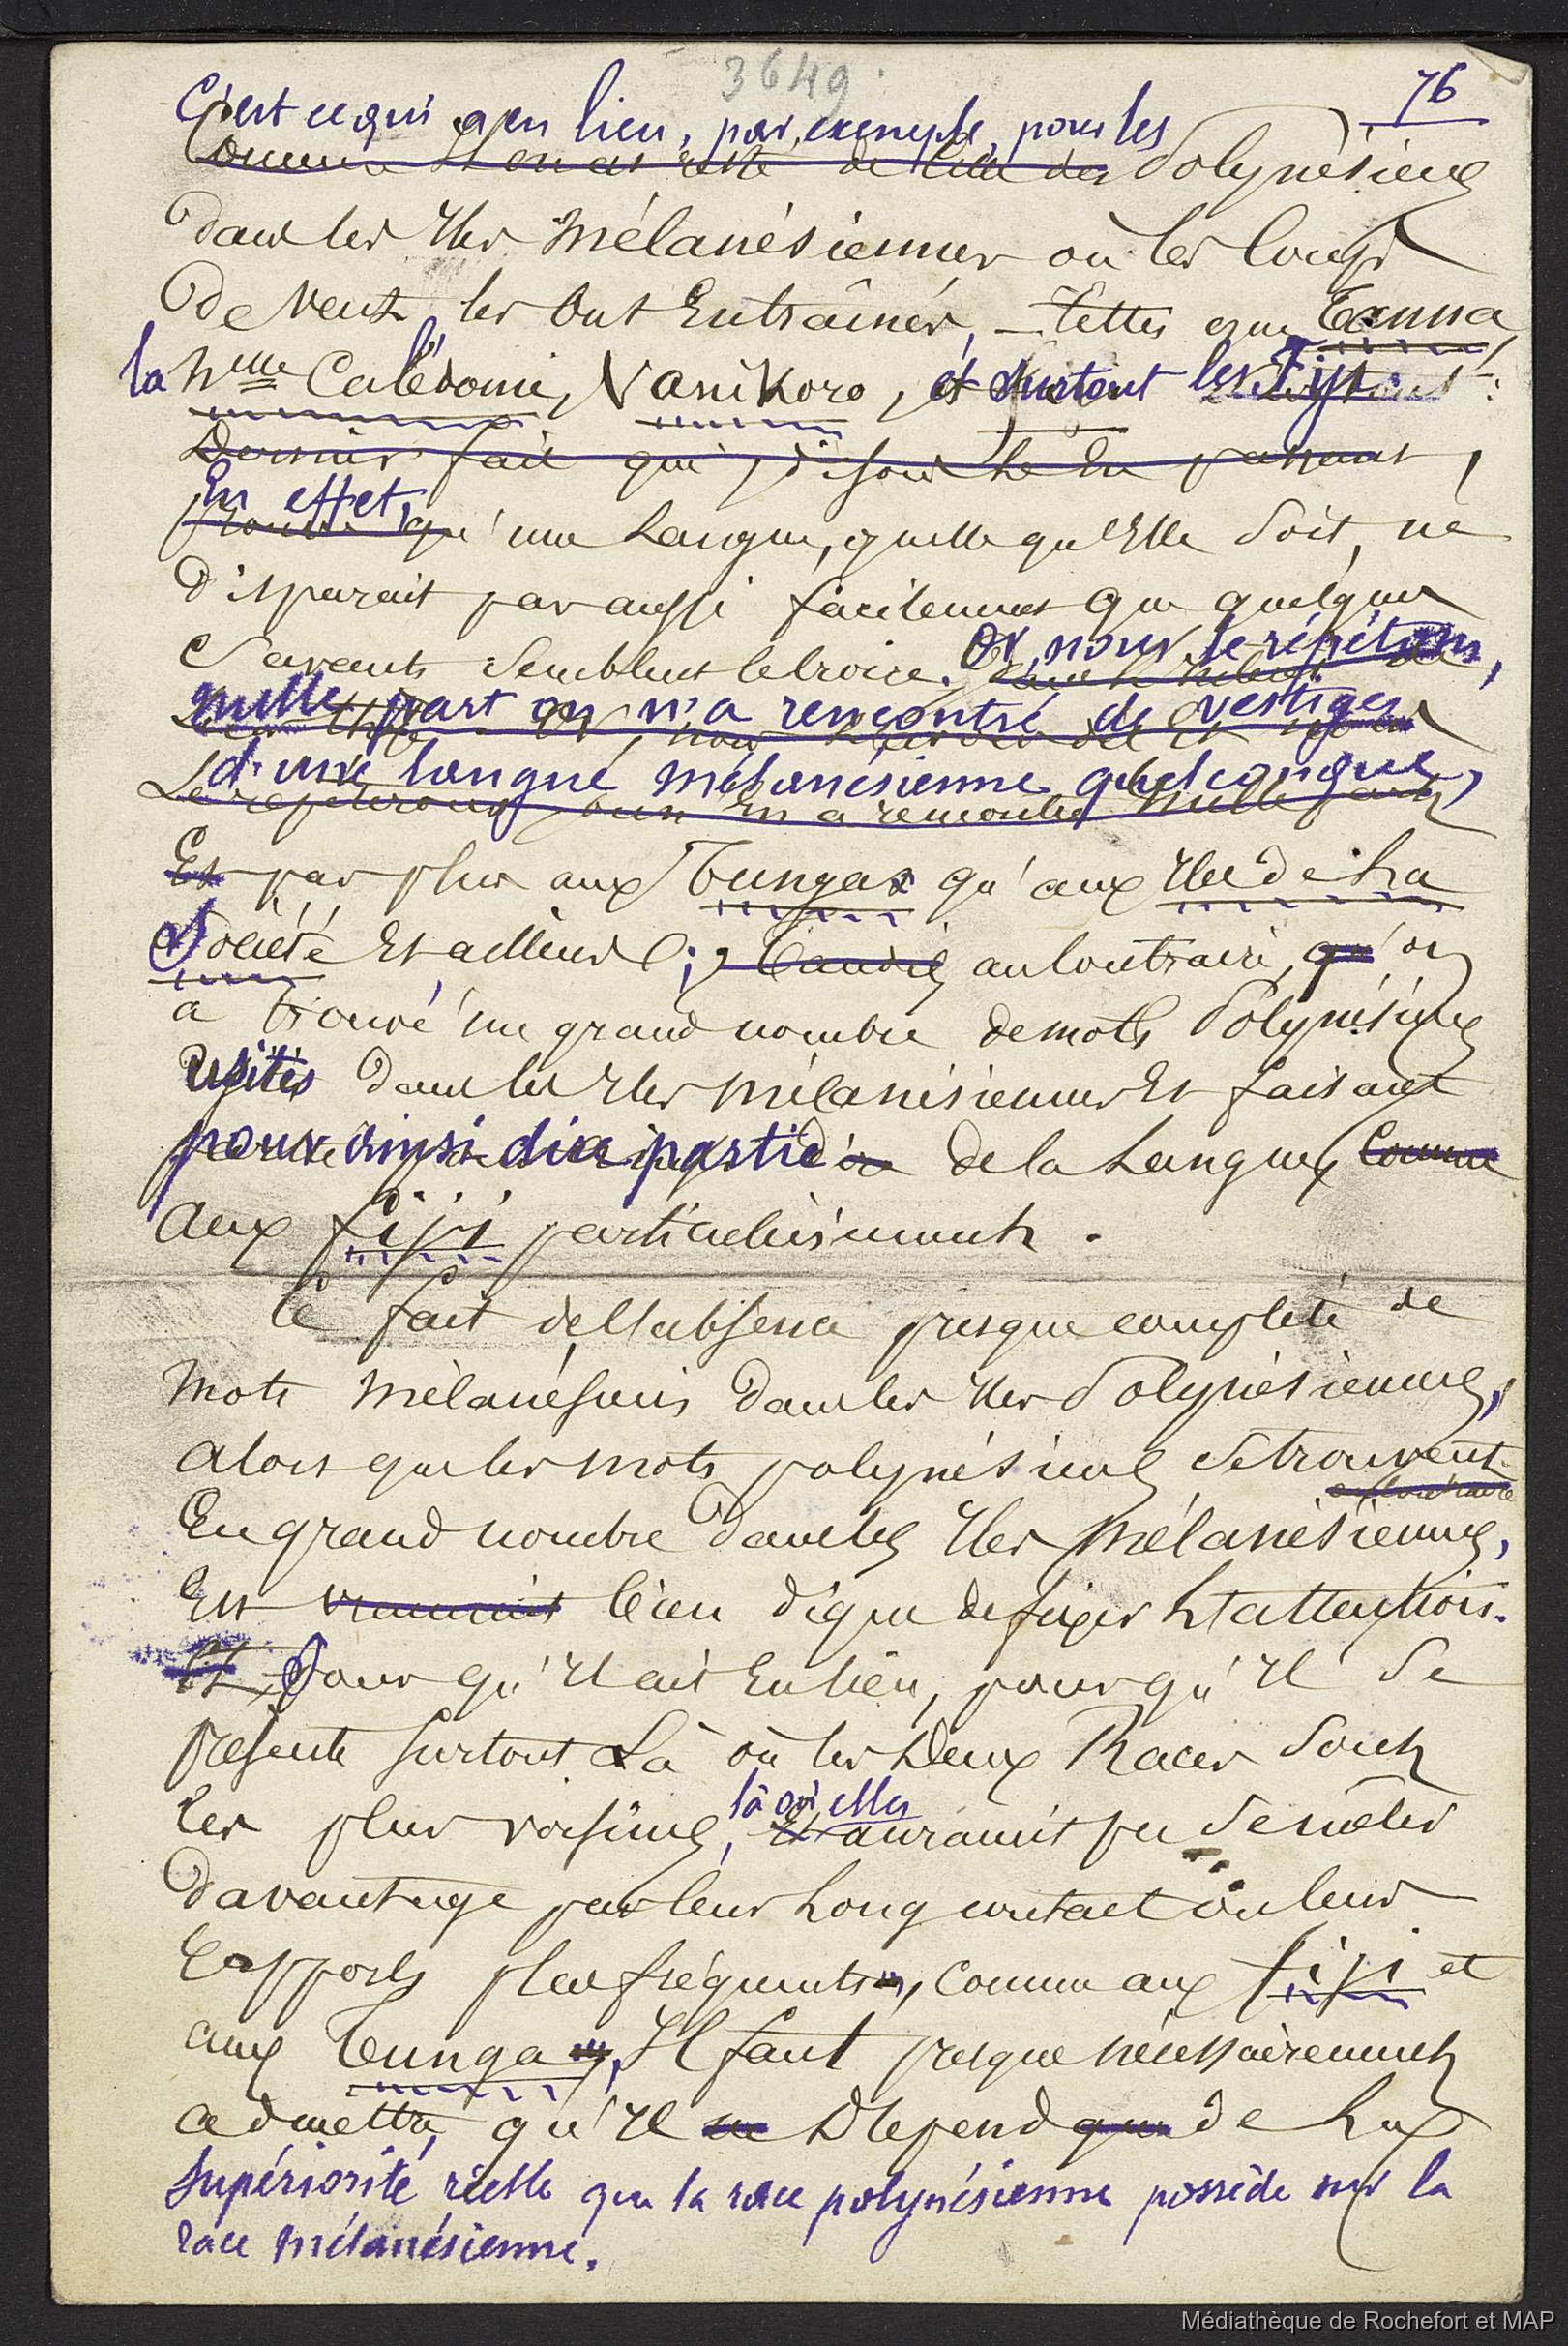 3649
76
C'est ce qui a eu lieu, par exemple, pour les
Comme il en est resté de celle des Polynésiens
dans les Iles Mélanésiennes où les coups
de vents les ont Entraînés, — telles que Tanna,
la Nlle Calédonie, Vanikoro, et surtout les Fiji.
Dernier fait qui, disons le En passant,
En effet,
prouve qu'une Langue, quelle qu'Elle Soit, ne
disparait pas aussi facilement que quelques
Savants Semblent le croire. Or, nous le répétons,
nulle part on n'a rencontré de vestiges
d'une langue mélanésienne quelconque,
Le répéterons, on n'En a rencontré nulle part
Et pas plus aux Tungas qu'aux Iles de La
Société Et ailleurs ; tandis au contraire, qu'on
a trouvé un grand nombre de mots Polynésiens
usités dans les Iles Mélanésiennes Et faisant
pour ainsi dire partie de la Langue, Comme
aux Fiji particulièrement.
Le fait de l'absence presque complète de
Mots Mélanésiens dans les Iles Polynésiennes,
alors que les mots polynésiens se trouvent
au contraire
En grand nombre dans les Iles Mélanésiennes,
Est vraiment bien digne de fixer L'attention.
Et Pour qu'Il ait Eu lieu, pour qu'Il Se
présente surtout Là où les Deux Races Sont
les plus voisines, là où elles
Et auraient pu Se mêler
davantage par leur Long contact ou leurs
rapports plus fréquents, comme aux Fiji et
aux Tunga, Il faut presque nécessairement
admettre qu'Il ne Dépend que de La
supériorité réelle que la race polynésienne possède sur la
race mélanésienne.
Médiathèque de Rochefort et MAP